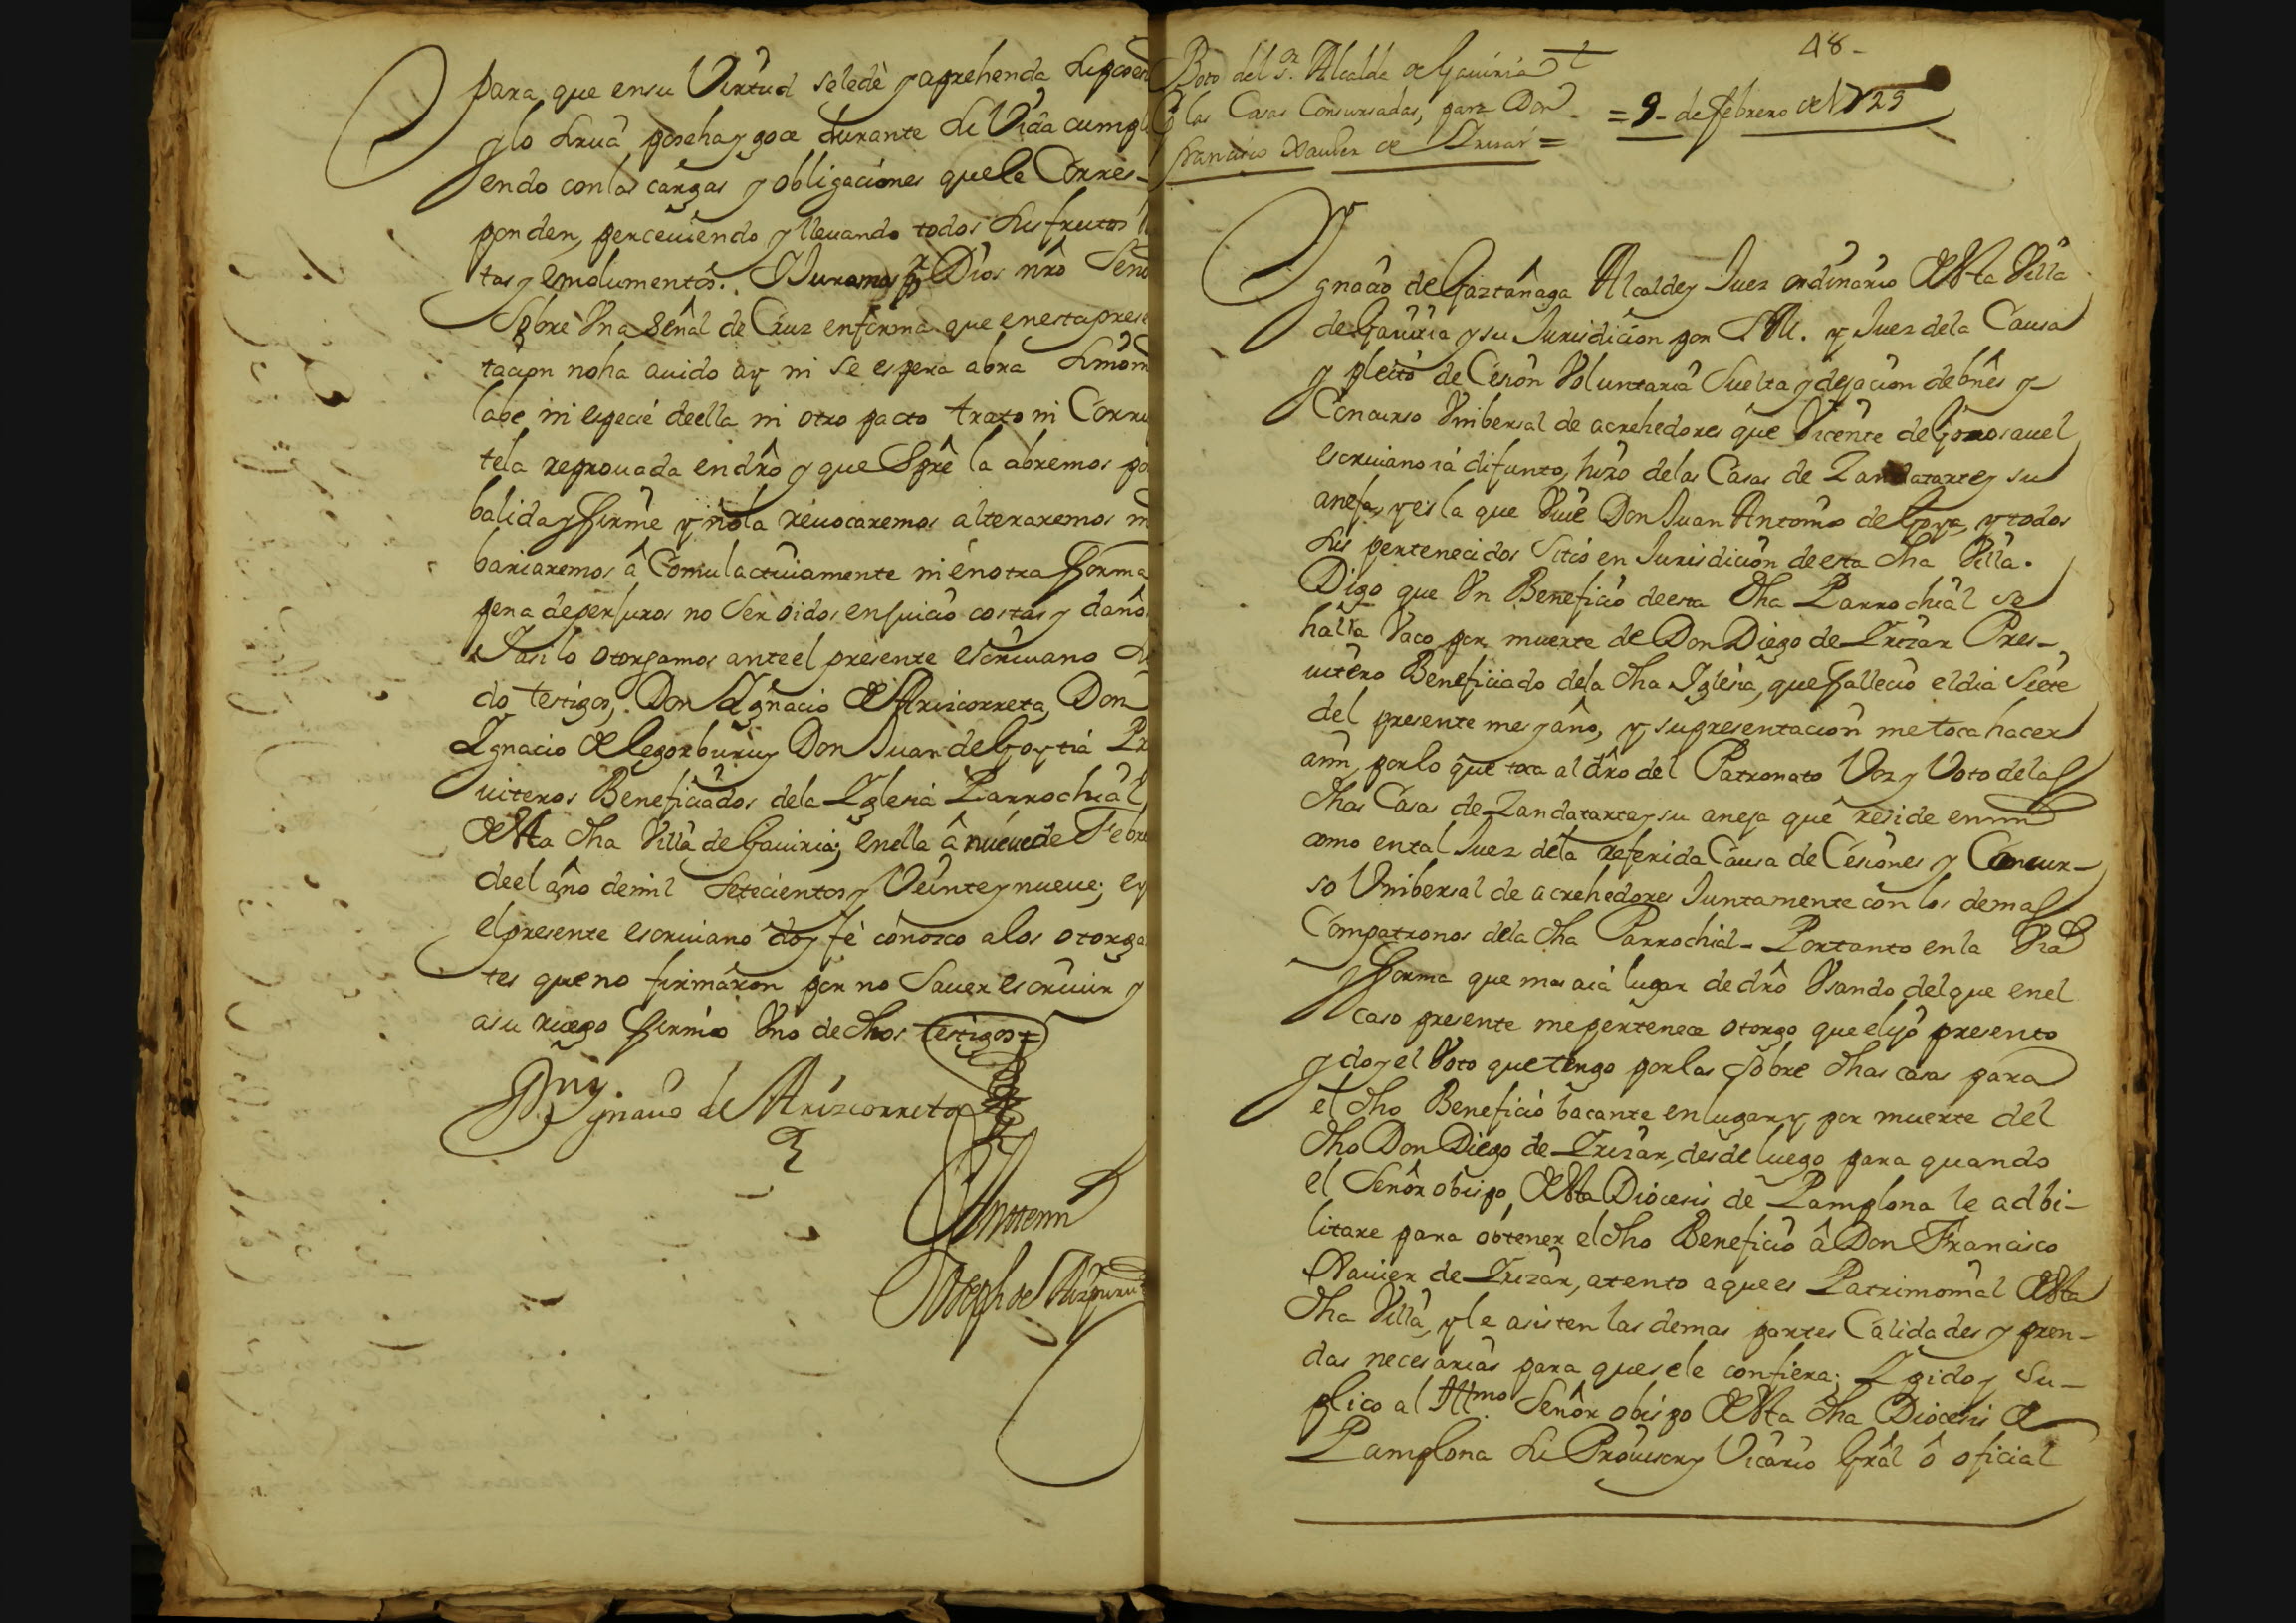 para que ensu Virtud seledè y aprehenda su posen
y lo sirua poseha y goce durante su Vida cumpli
endo conlas cargas y obligaciones quele Corres-
ponden, perceuiendo y lleuando todos sus frutos
tas y emolumentos. Y Juramos pr Dios nrô Señ
Sobre Vna Señal de Cruz enforma que enesta prese
tacion noha auido ay ni se espera abra Simon
labe ni especie deella ni otro pacto trato ni Corru
tela reprouada endrô y que Sprê la abremos po
balida y firme y nola reuocaremos alteraremos ni
bariaremos â Comulactiuamente ni enotra forma
pena deperjuros no Ser oidos enjuicio costas y daño
Y asi lo otorgamos anteel presente escriuano si
do testigos, Don Ignacio de Arizcorreta, Don
Ignacio de legorburu y Don Juan de Goytia Pr
uiteros Beneficiados dela Iglesia Parrochial
desta dha Villa de Gauiria; enella â nueuede Febre
deel año demil Setecientos y Veinte y nueue; ey
elpresente escriuano doy fè conozco alos otorga
tes queno firmaron por no Sauer escriuir y
asu ruego firmo Vno de dhos testigos=
Ygnacio de Arizcorreta
Antemi
Joseph de Aizpuru
48-
Boto del sr. Alcalde de Gauiria
las Casas Consursadas, para Don
francisco Xauier de Irizar =
= 9- de febrero de 1729
Ygnacio de Gaztañaga Alcalde y Juez ordinario desta Villa
de Gauiria y su Jurisdicion por S.M. y Juez dela Causa
y pleito de Cesion Voluntaria Suelta y dejacion debnês y
Concurso Vnibersal de acrehedores que Vicente de Gorosauel
escriuano iá difunto, hizo delas Casas de Zandatarte y su
aneja, y es la que Viue Don Juan Antonio de Goya, y todos
sus pertenecidos Sitio en Jurisdicion de esta dha Villa.
Digo que Vn Beneficio deesta dha Parrochial se
halla Vaco por muerte de Don Diego de Irizar Pres-
uitero Beneficiado dela dha Iglesia, que fallecio eldia Siete
del presente mes y año, y supresentacion me toca hacer
ami, porlo que toca al drô del Patronato Voz y Voto delas
dhas Casas de Zandatarte y su aneja que reside enmi
como ental Juez dela referida Causa de Cesiones y Concur-
so Vnibersal de acrehedores Juntamente con los demas
Compatronos dela dha Parrochial- Portanto en la Via
y forma que mas aiá lugar de drô Vsando delque enel
caso presente mepertenece otorgo que elijo presento
y doy el Voto que tengo porlas sobre dhas casas para
el dho Beneficio bacante enlugar y por muerte del
dho Don Diego de Irizar, desde luego para quando
el Señor obispo desta Diocesis de Pamplona le adbi-
litare para obtener eldho Beneficio â Don Francisco
Xauier de Irizar, atento aquees Patrimonial desta
dha Villa, y le asisten las demas partes Calidades y pren-
das necesarias para quesele confiera; Y pido y Su-
plico al Illmo Señor obispo desta dha Diocesis de
Pamplona su Prouisor y Vicario Grâl ô oficial